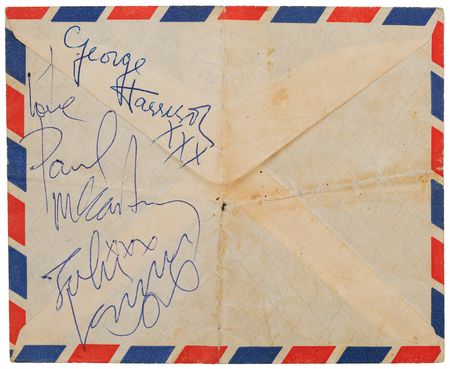 George
Harrison
xxx
Love
Paul
McCartney
John xxx
Lennon